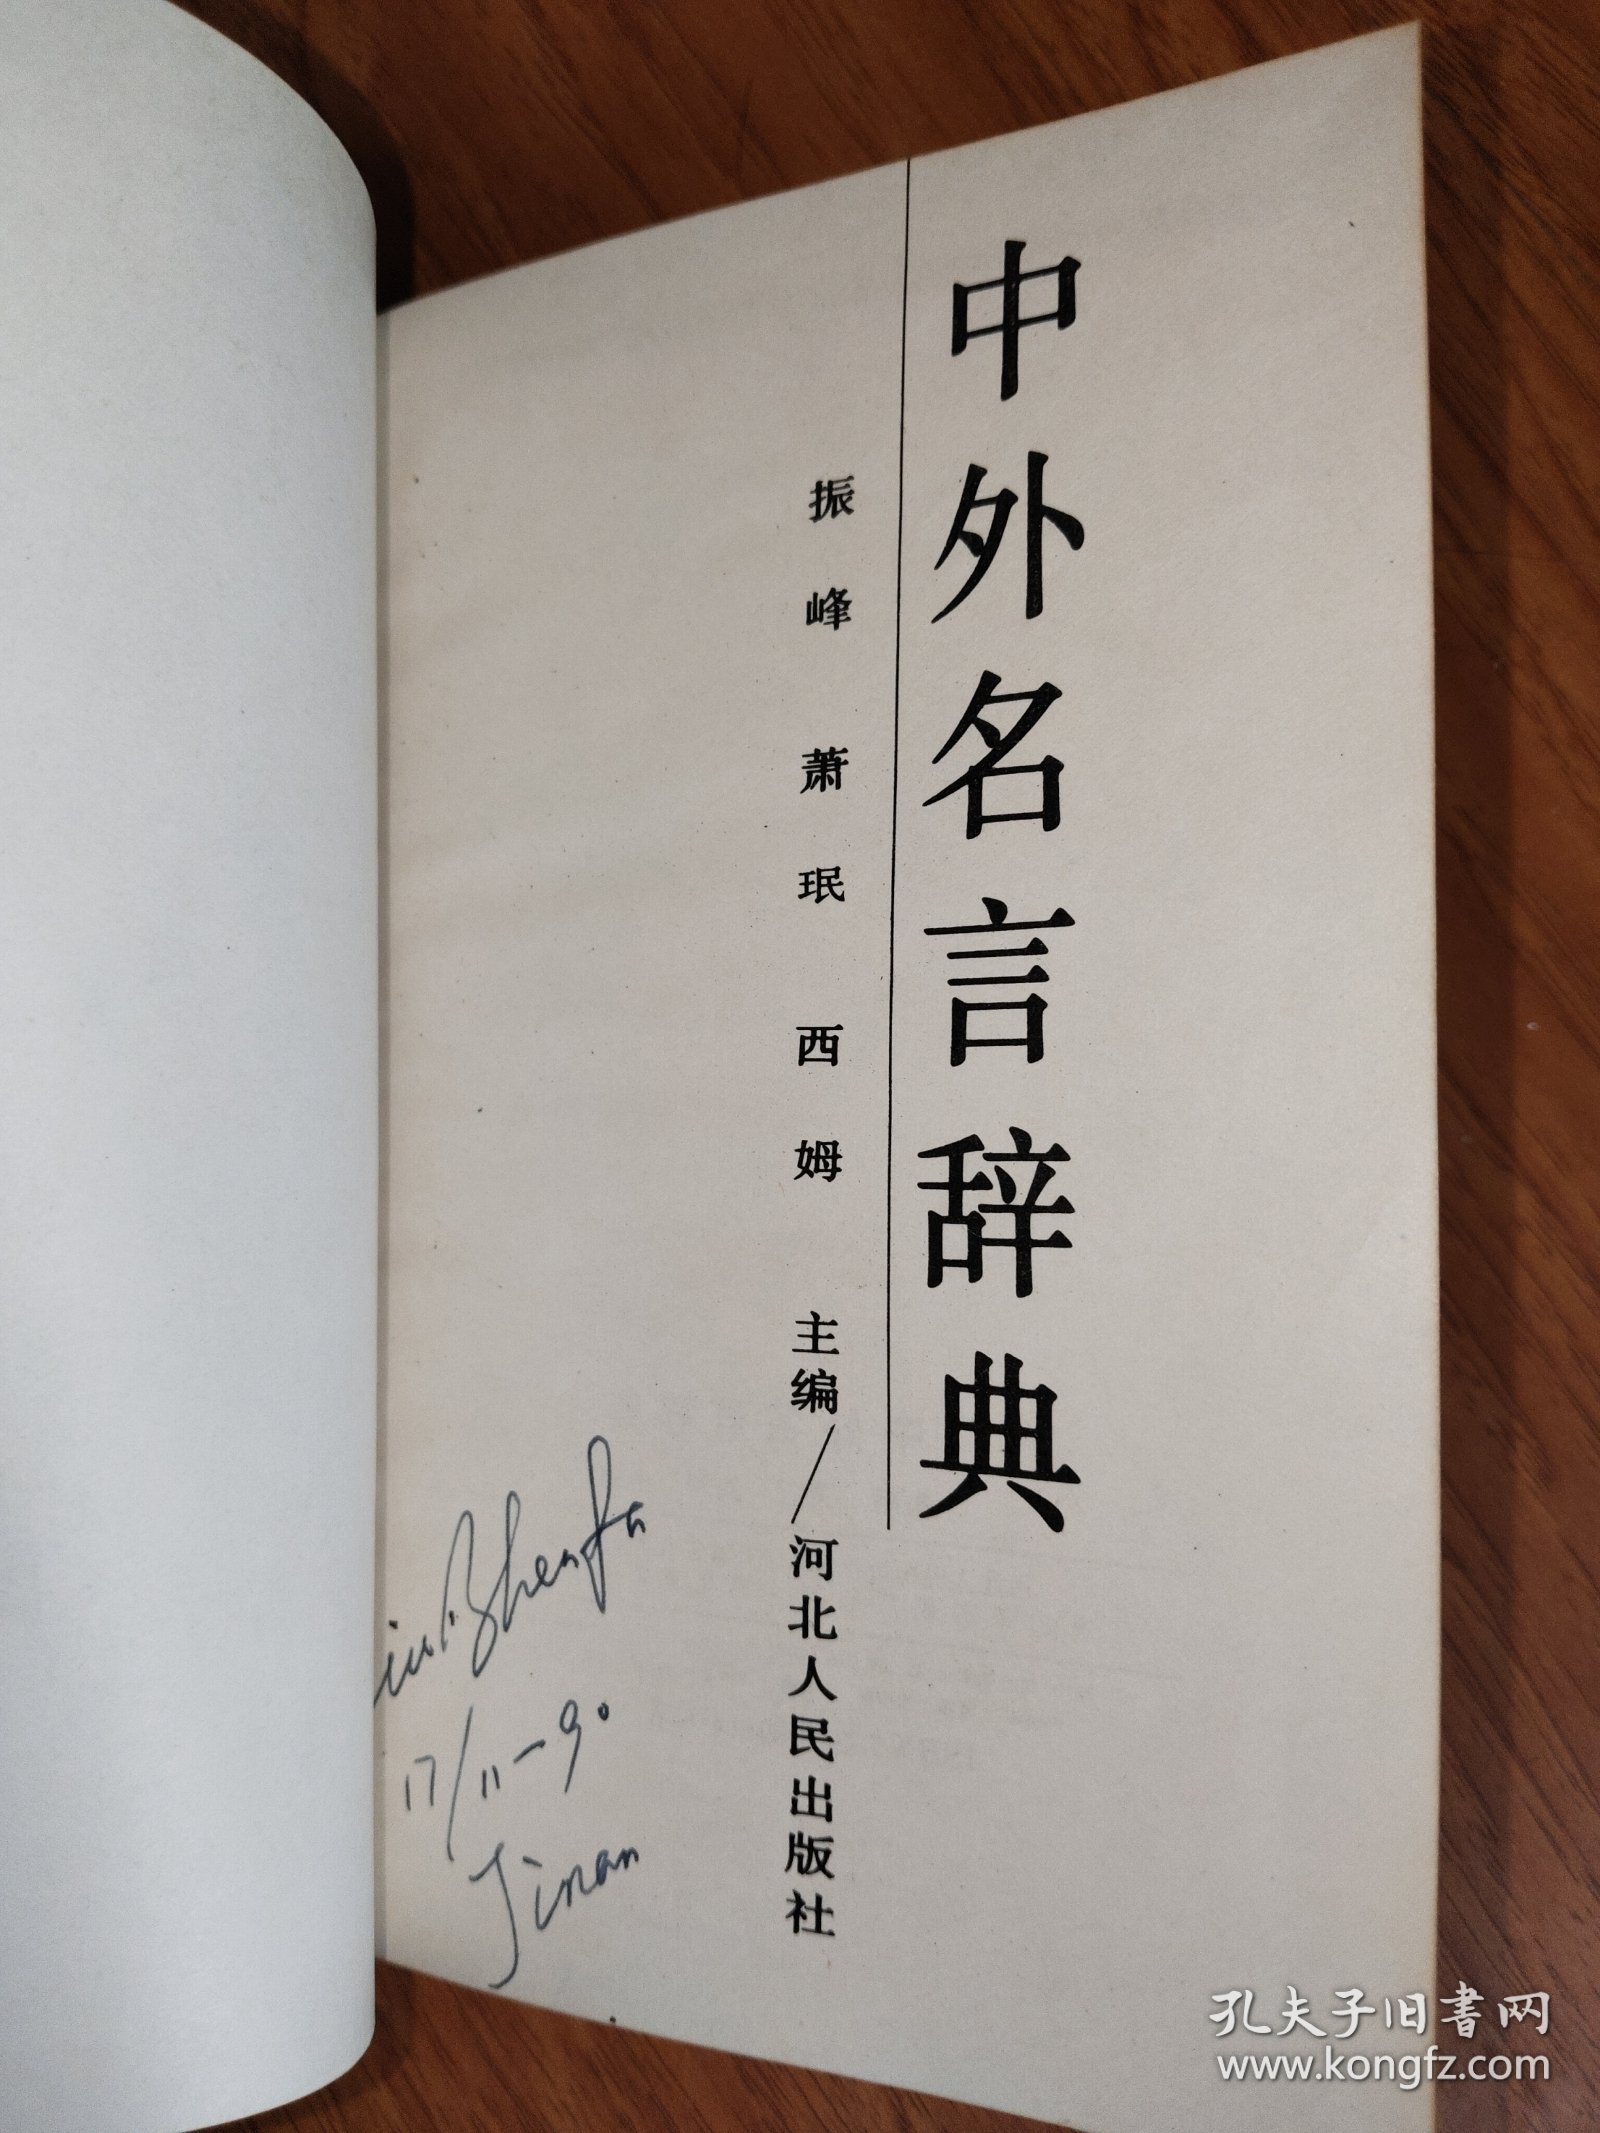 中外名言辞典
振峰 萧珉 西姆 主编/河北人民出版社
17/11-90
Jinan
孔夫子旧书网
www.kongfz.com